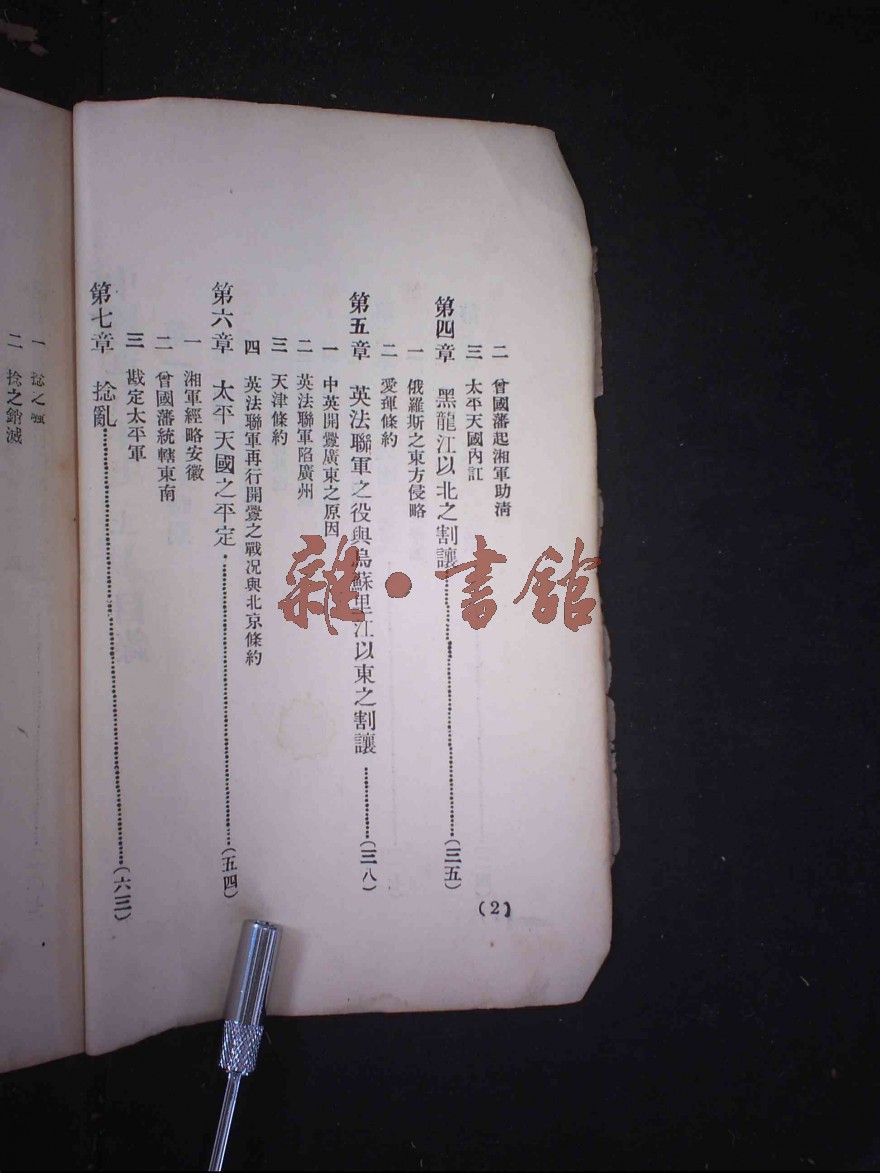 二 曾國藩起湘軍助清
三 太平天國內訌
第四章 黑龍江以北之割讓……(三五)
一 俄羅斯之東方侵略
二 愛琿條約
第五章 英法聯軍之役與烏蘇里江以東之割讓……(三八)
一 中英開釁廣東之原因
二 英法聯軍陷廣州
三 天津條約
四 英法聯軍再行開釁之戰况與北京條約
第六章 太平天國之平定……(五四)
一 湘軍經略安徽
二 曾國藩統轄東南
三 戡定太平軍
第七章 捻亂……(六三)
(2)
一 捻之
二 捻之銷滅
雜·書館